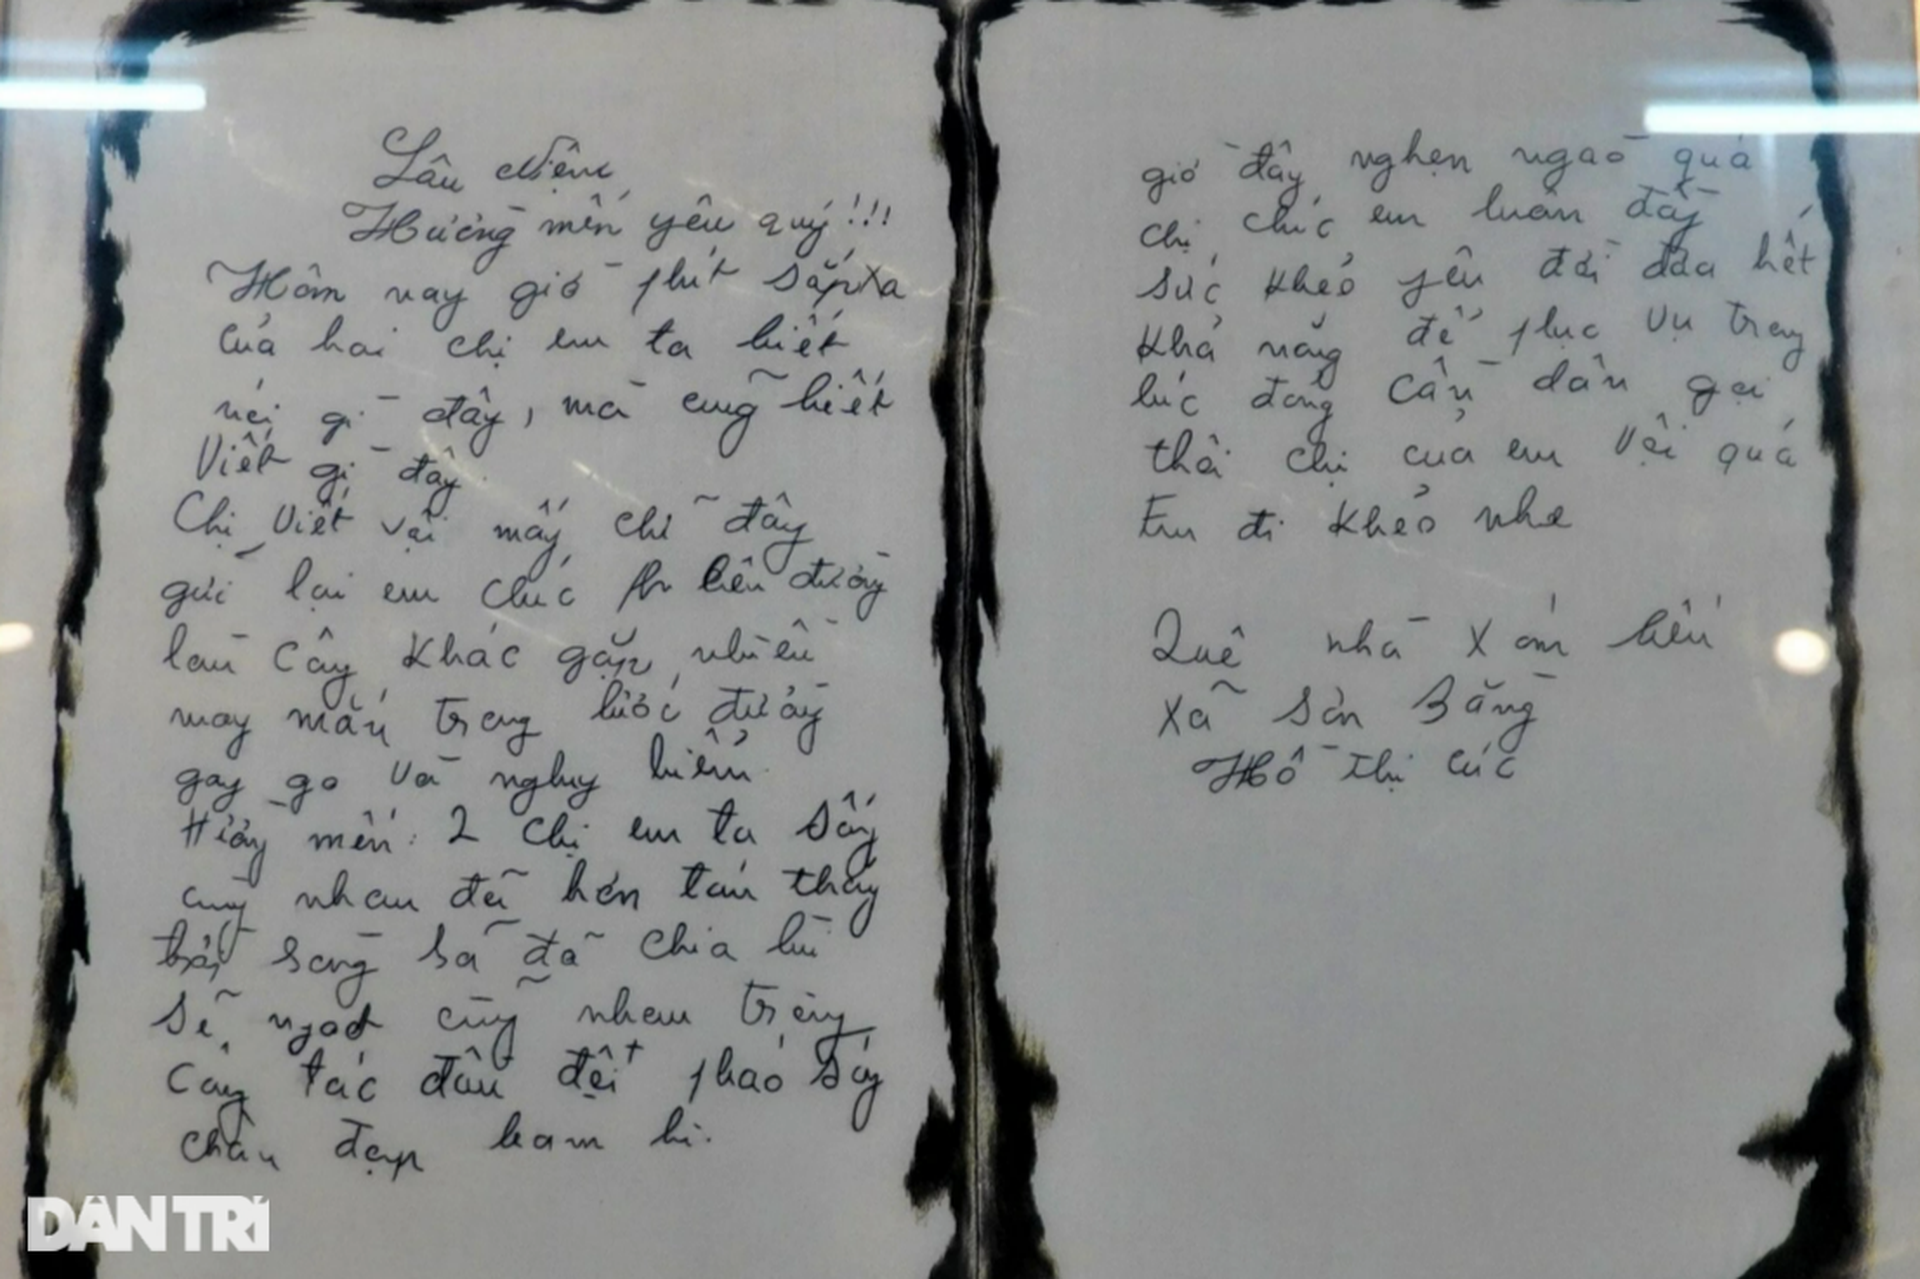 Lâu Niệm
Hương mến yêu quý!!!
Hôm nay giờ phút sắp xa
của hai chị em ta biết
nói gì đây, mà cũng biết
Viết gì đây
Chị Viết vội mấy chữ đây
gửi lại em chúc lên đường
làm Cây Khác gặp nhiều
may mắn trong bước đường
gay go và nguy hiểm
Hường mến: 2 chị em ta sống
cùng nhau đã hơn tán tháng
sang đã đã chia bùi
sẽ ngọt cùng nhau trong
Công tác đầu đội pháo sáng
chân đạp bam bi.
giờ đây nghẹn ngào quá
chị chúc em luôn đầy
sức khẻo yêu đời đưa hết
khả năng để phục vụ trong
lúc đảng cần dân gọi
thôi chị của em vội quá
Em đi khẻo nhe
Quê nhà Xóm bến
Xã Sơn Bằng
Hồ Thị Cúc
DÂN TRÍ